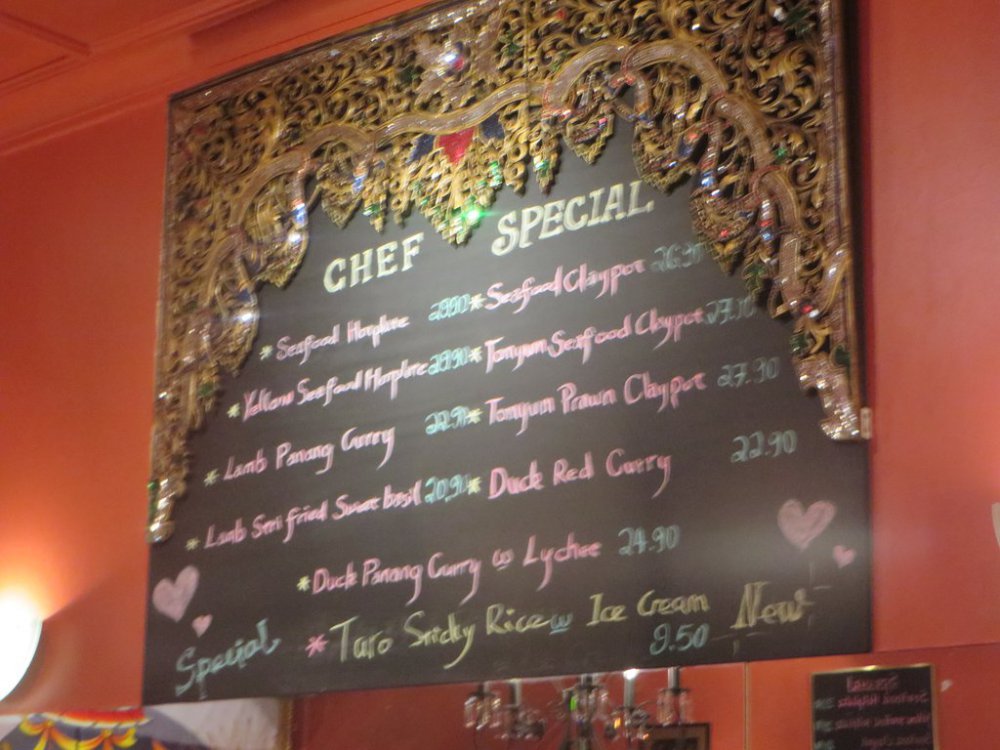 CHEF SPECIAL
* Seafood Hotplate
* Seafood Claypot 26.90
* Yellow Seafood Hotplate 29.90
* Tomyum Seafood Claypot 27.90
* Lamb Panang Curry 22.90
* Tomyum Prawn Claypot 27.90
* Lamb Stri fried Sweet basil 20,90
* Duck Red Curry 22.90
* Duck Panang Curry w Lychee 24.90
Special * Taro Sticky Rice w Ice Cream New
9.50